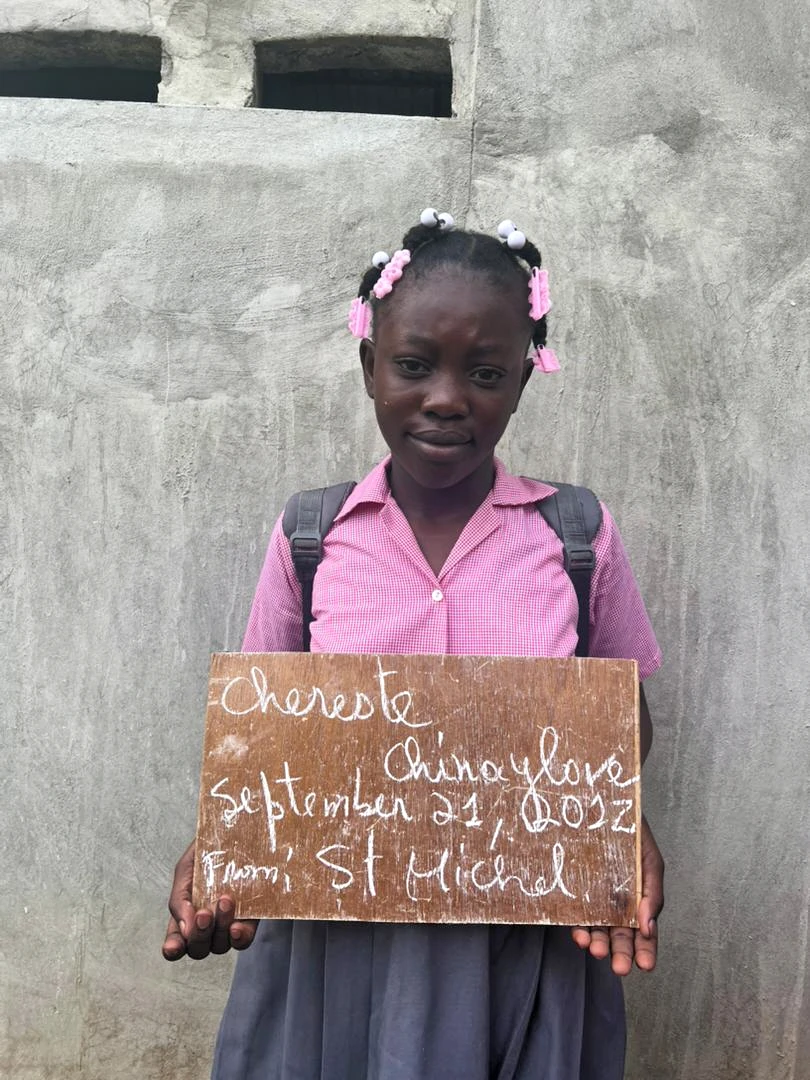 Chereste
Chinaylove
September 21, 2012
From: St Michel